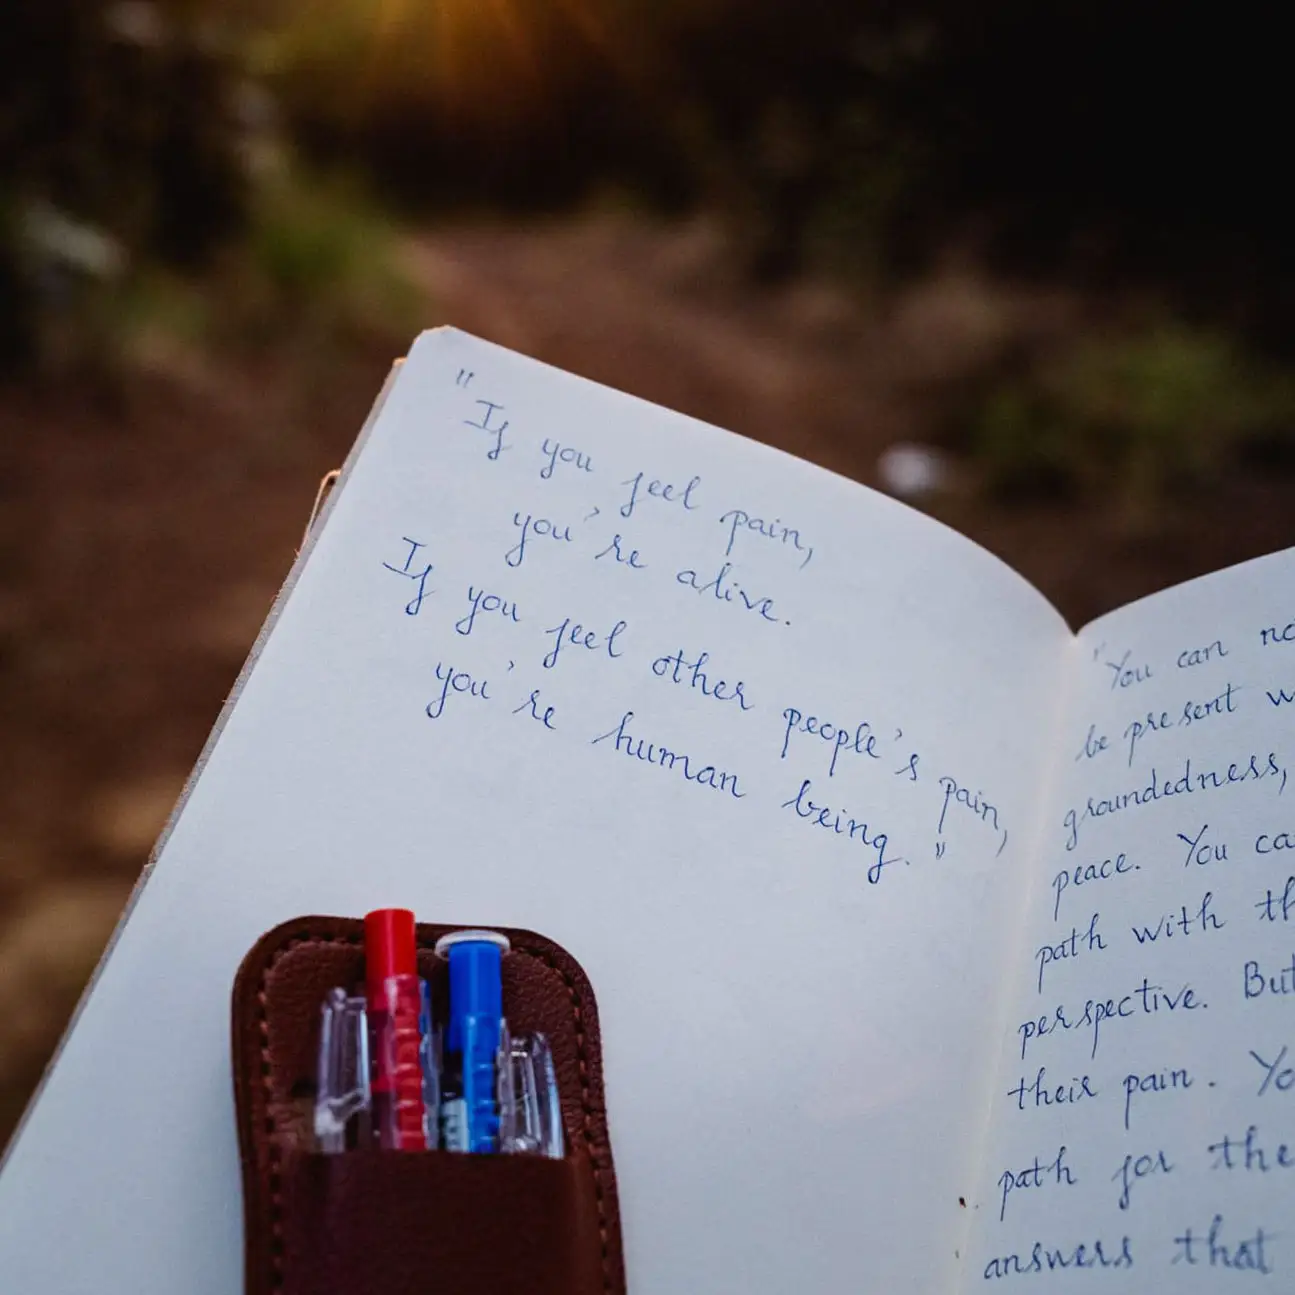 "If you feel pain,
you're alive.
If you feel other people's pain,
you're human being."
"You can no
be present w
groundedness,
peace. You ca
path with th
perspective. But
their pain. Yo
path for the
answers that